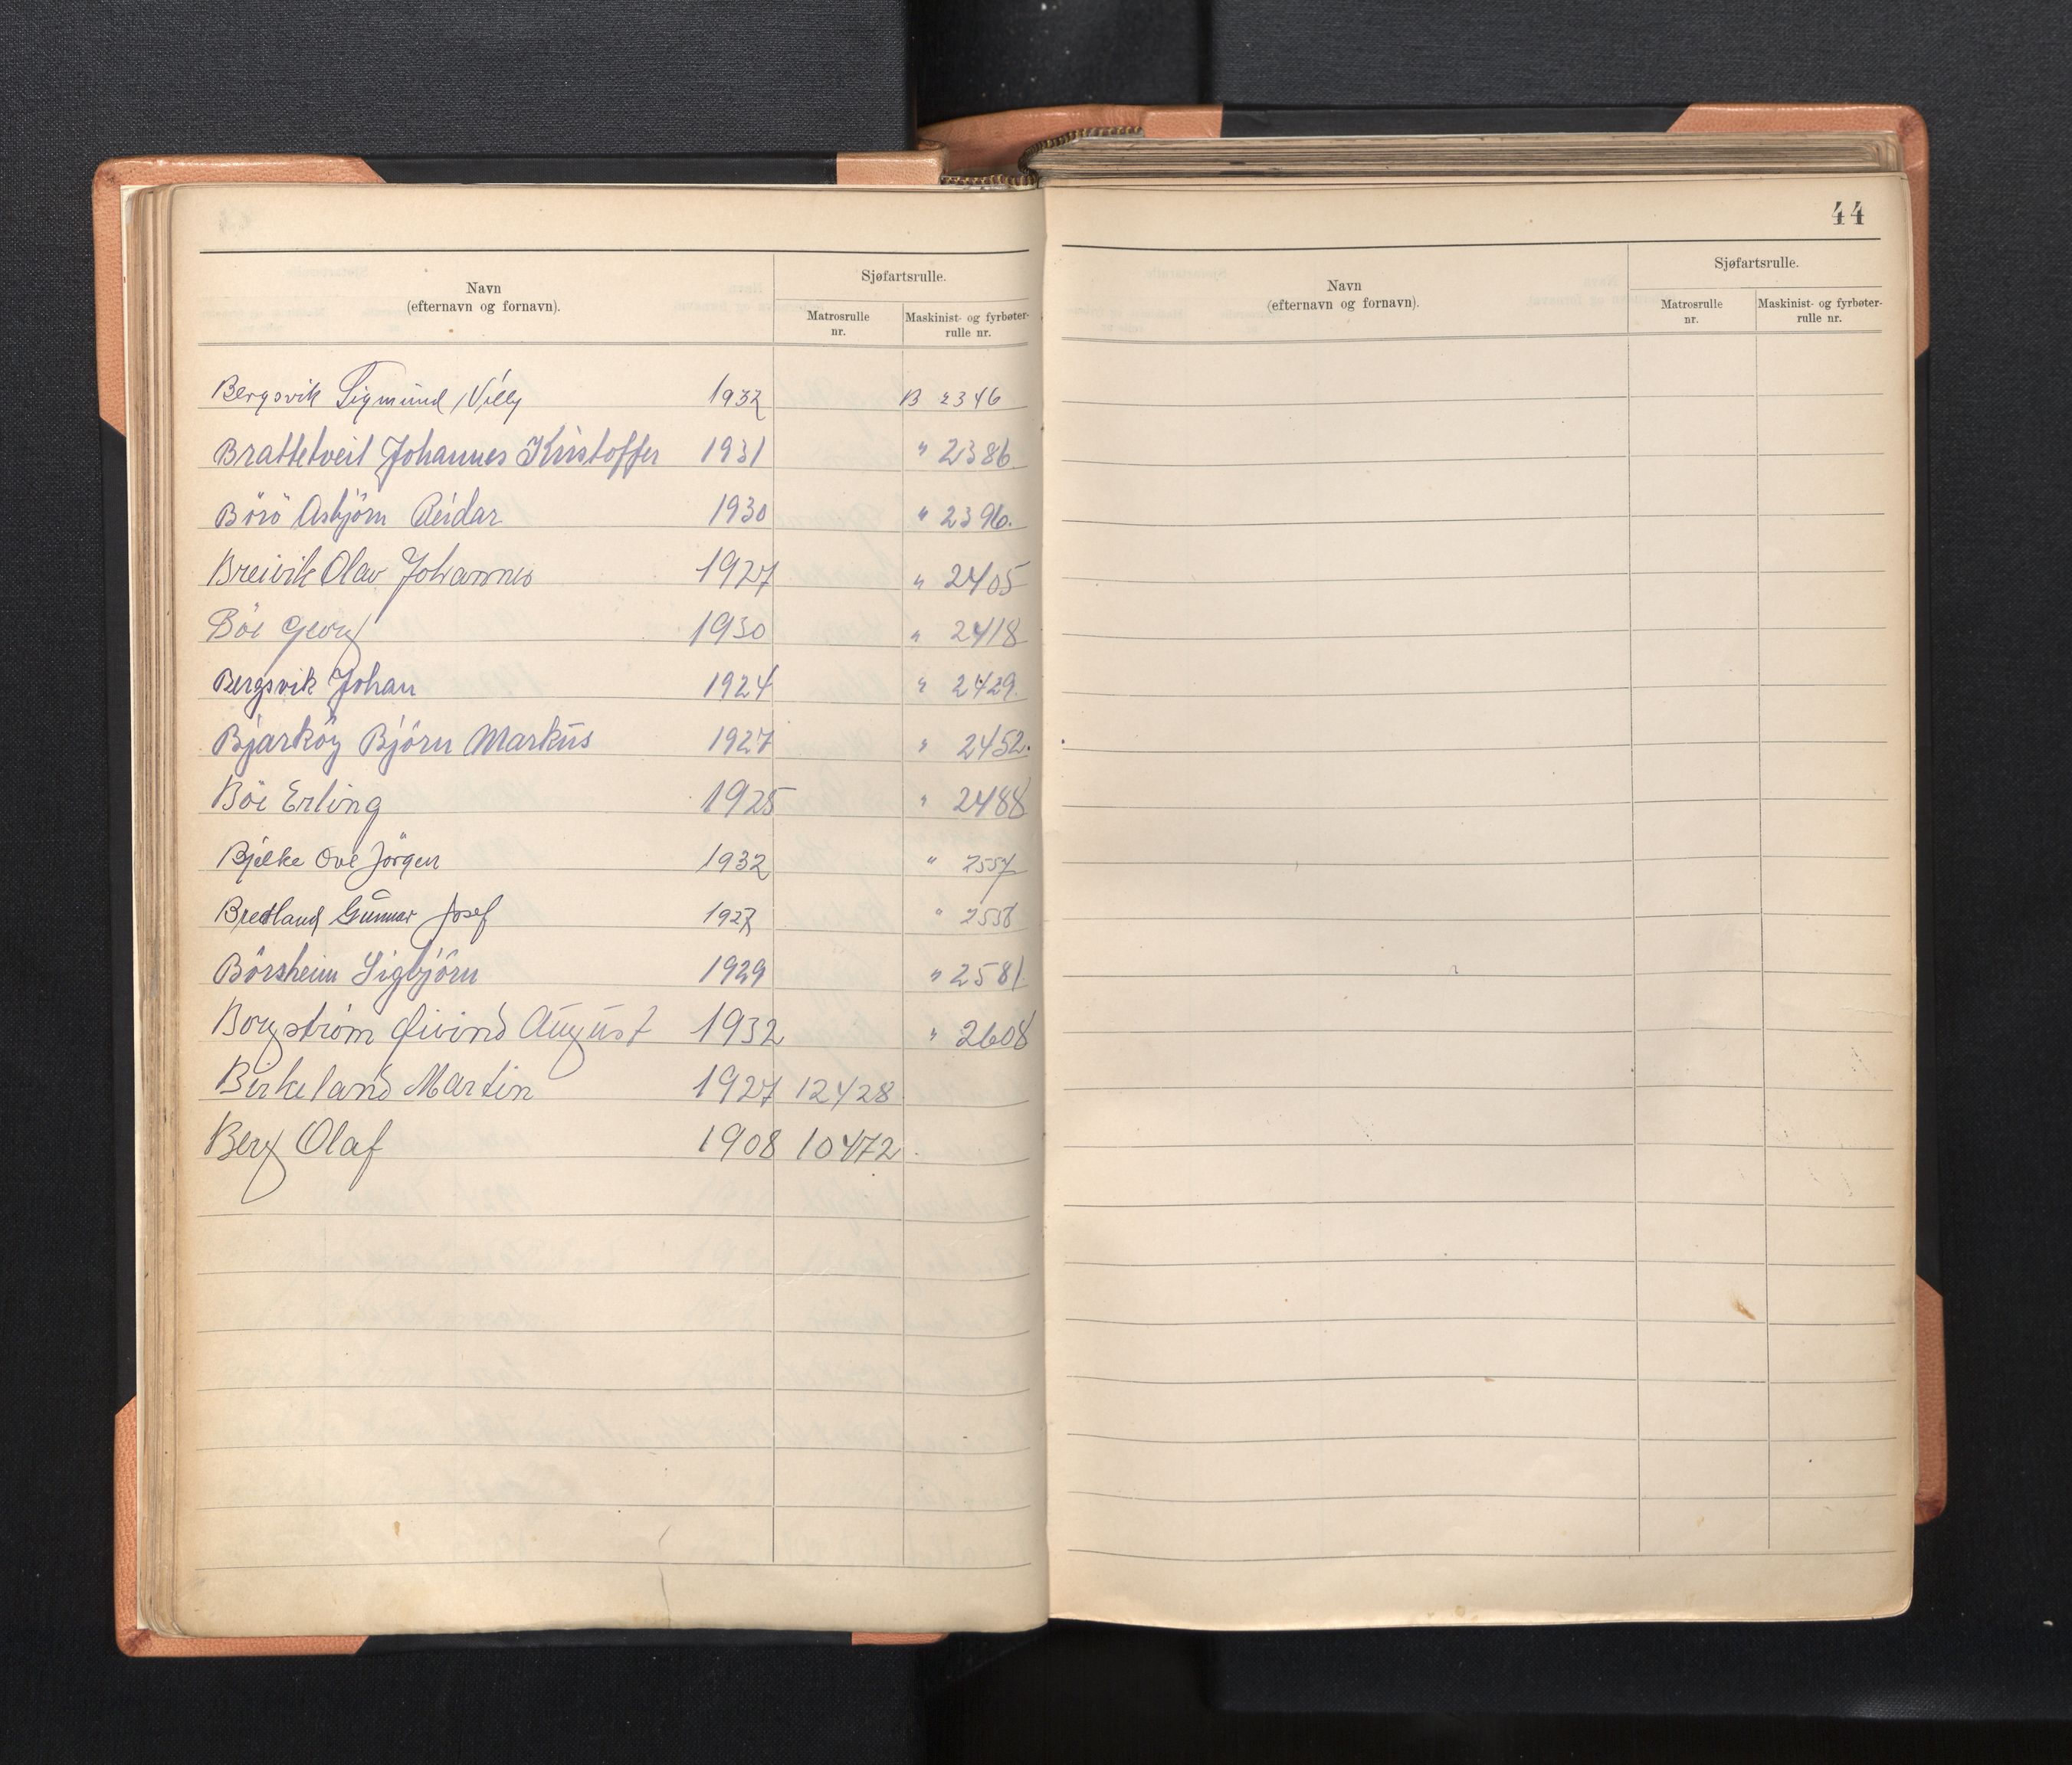 Navn
(efternavn og fornavn).
Sjøfartsrulle.
Matrosrulle
nr.
Maskinist- og fyrbøter-
rulle nr.
Bergsvik Sigmund Villy 1932 B 2346
Brattetveit Johannes Kristoffer 1931 " 2386.
Börö Asbjörn Reidar 1930 " 2396.
Breivik Olav Johannes 1927 " 2405
Böe Georg 1930 " 2418
Bergsvik Johan 1924 " 2429.
Bjarköy Björn Markus 1927 " 2452.
Böe Erling 1925 " 2488
Bjelke Ove Jörgen 1932 " 2557
Bredland Gunnar Josef 1927 " 2558
Börsheim Sigbjörn 1929 " 2581
Borgström Øivind August 1932 " 2608
Birkeland Martin 1927 12428
Berg Olaf 1908 10472
44
Navn
(efternavn og fornavn).
Sjøfartsrulle.
Matrosrulle
nr.
Maskinist- og fyrbøter-
rulle nr.